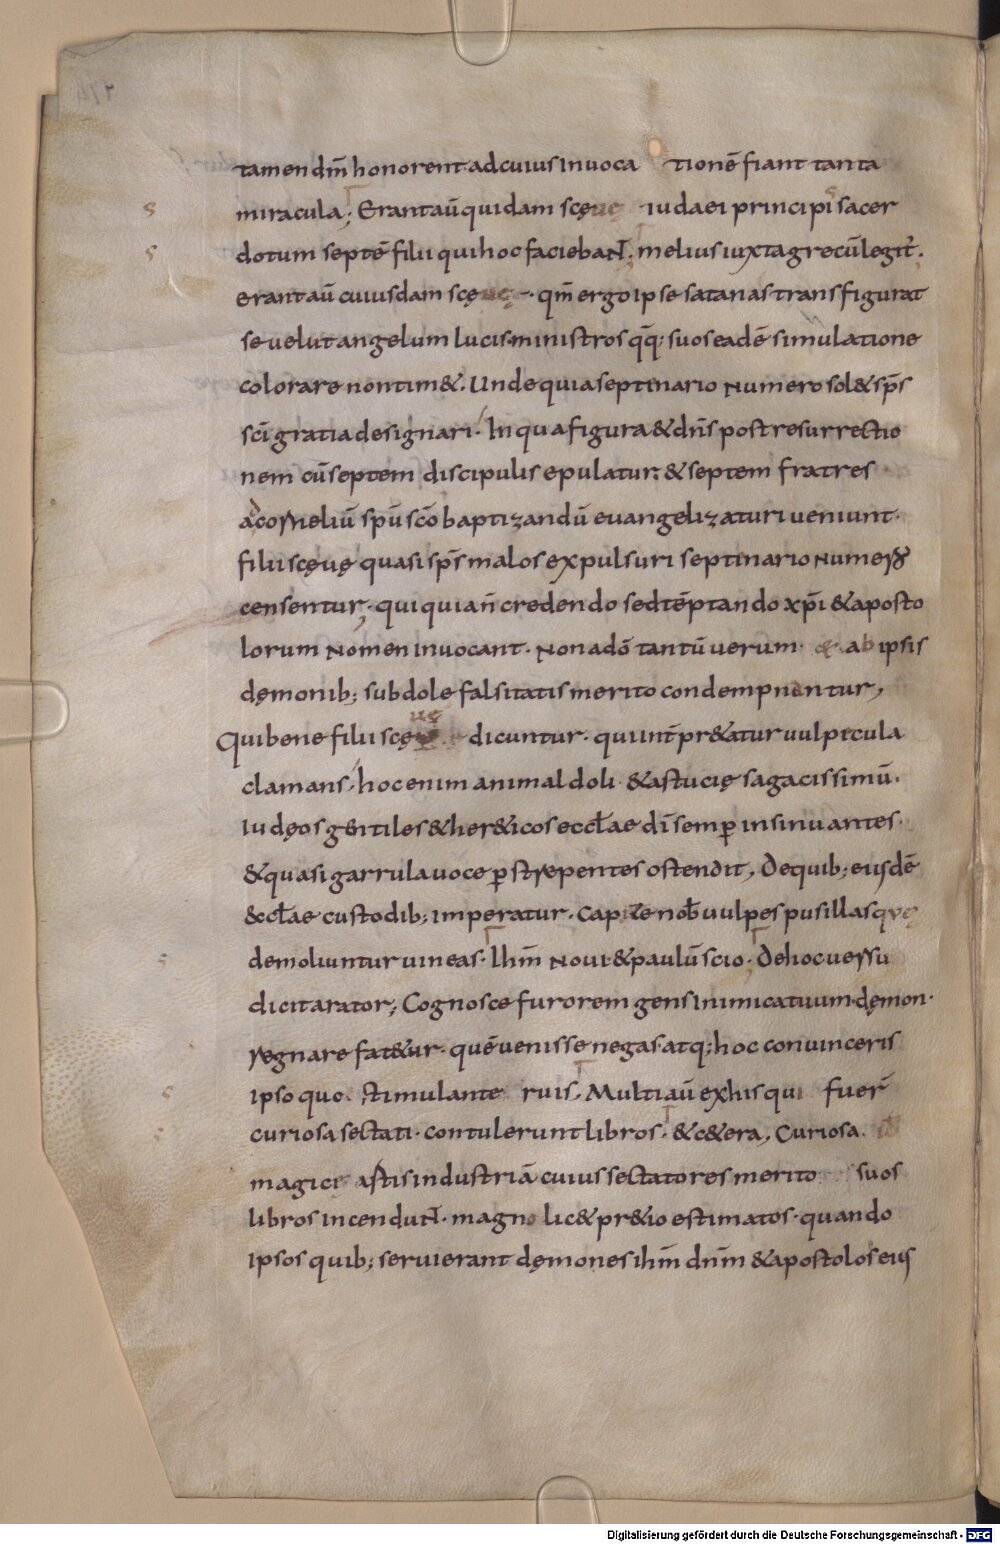 tamen dm̄ honorent ad cuius inuoca tionē fiant tanta
miracula; Erant aū quidam scęuę iudaei principis sacer
dotum septē filii qui hoc faciebant; melius iuxta grecū legit̄.
erant aū cuiusdam scęuę qm̄ ergo ipse satanas transfigurat
se uelut angelum lucis. ministros qq̄; suos eadē simulatione
colorare non tim&. Unde quia septenario numero sol& sp̄s
sc̄i gratia designari. In qua figura & dn̄s post resurrectio
nem cū septem discipulis epulatur; & septem fratres
ad cornelium spū scō baptizandū euangelizaturi ueniunt.
filii scęuę quasi sp̄s malos expulsuri septenario numero
censentur; qui quia n̄ credendo sed tēptando xp̄i & aposto
lorum nomen inuocant. Non a dō tantū uerum & ab ipsis
dęmonib; subdole falsitatis merito condempnantur,
Qui bene filii scęuę dicuntur. qui int̄pr&atur uulpecula
clamans, hoc enim animal doli & astucię sagacissimū.
Iudęos g&ntiles & her&icos eccłae dī semp insinuantes.
& quasi garrula uoce pstrepentes ostendit, De quib; eiusdē
&ccłae custodib; imperatur. Capite nob̄ uulpes pusillas quę
demoliuntur uineas. Ihm̄ noui & paulū scio; De hoc uersu
dicit arator; Cognosce furorem gens inimica tuum. dęmon.
regnare fat&ur. quē uenisse negas. atq; hoc conuinceris
ipso quo stimulante ruis, Multi aū ex his qui fuer̄
curiosa sectati. contulerunt libros. & c&era, Curiosa
magicę artis industriā cuius sectatores merito suos
libros incendunt. magno lic& pr&io estimatos. quando
ipsos quib; seruierant dęmones ihm̄ dn̄m & apostolos eius
Digitalisierung gefördert durch die Deutsche Forschungsgemeinschaft - DFG